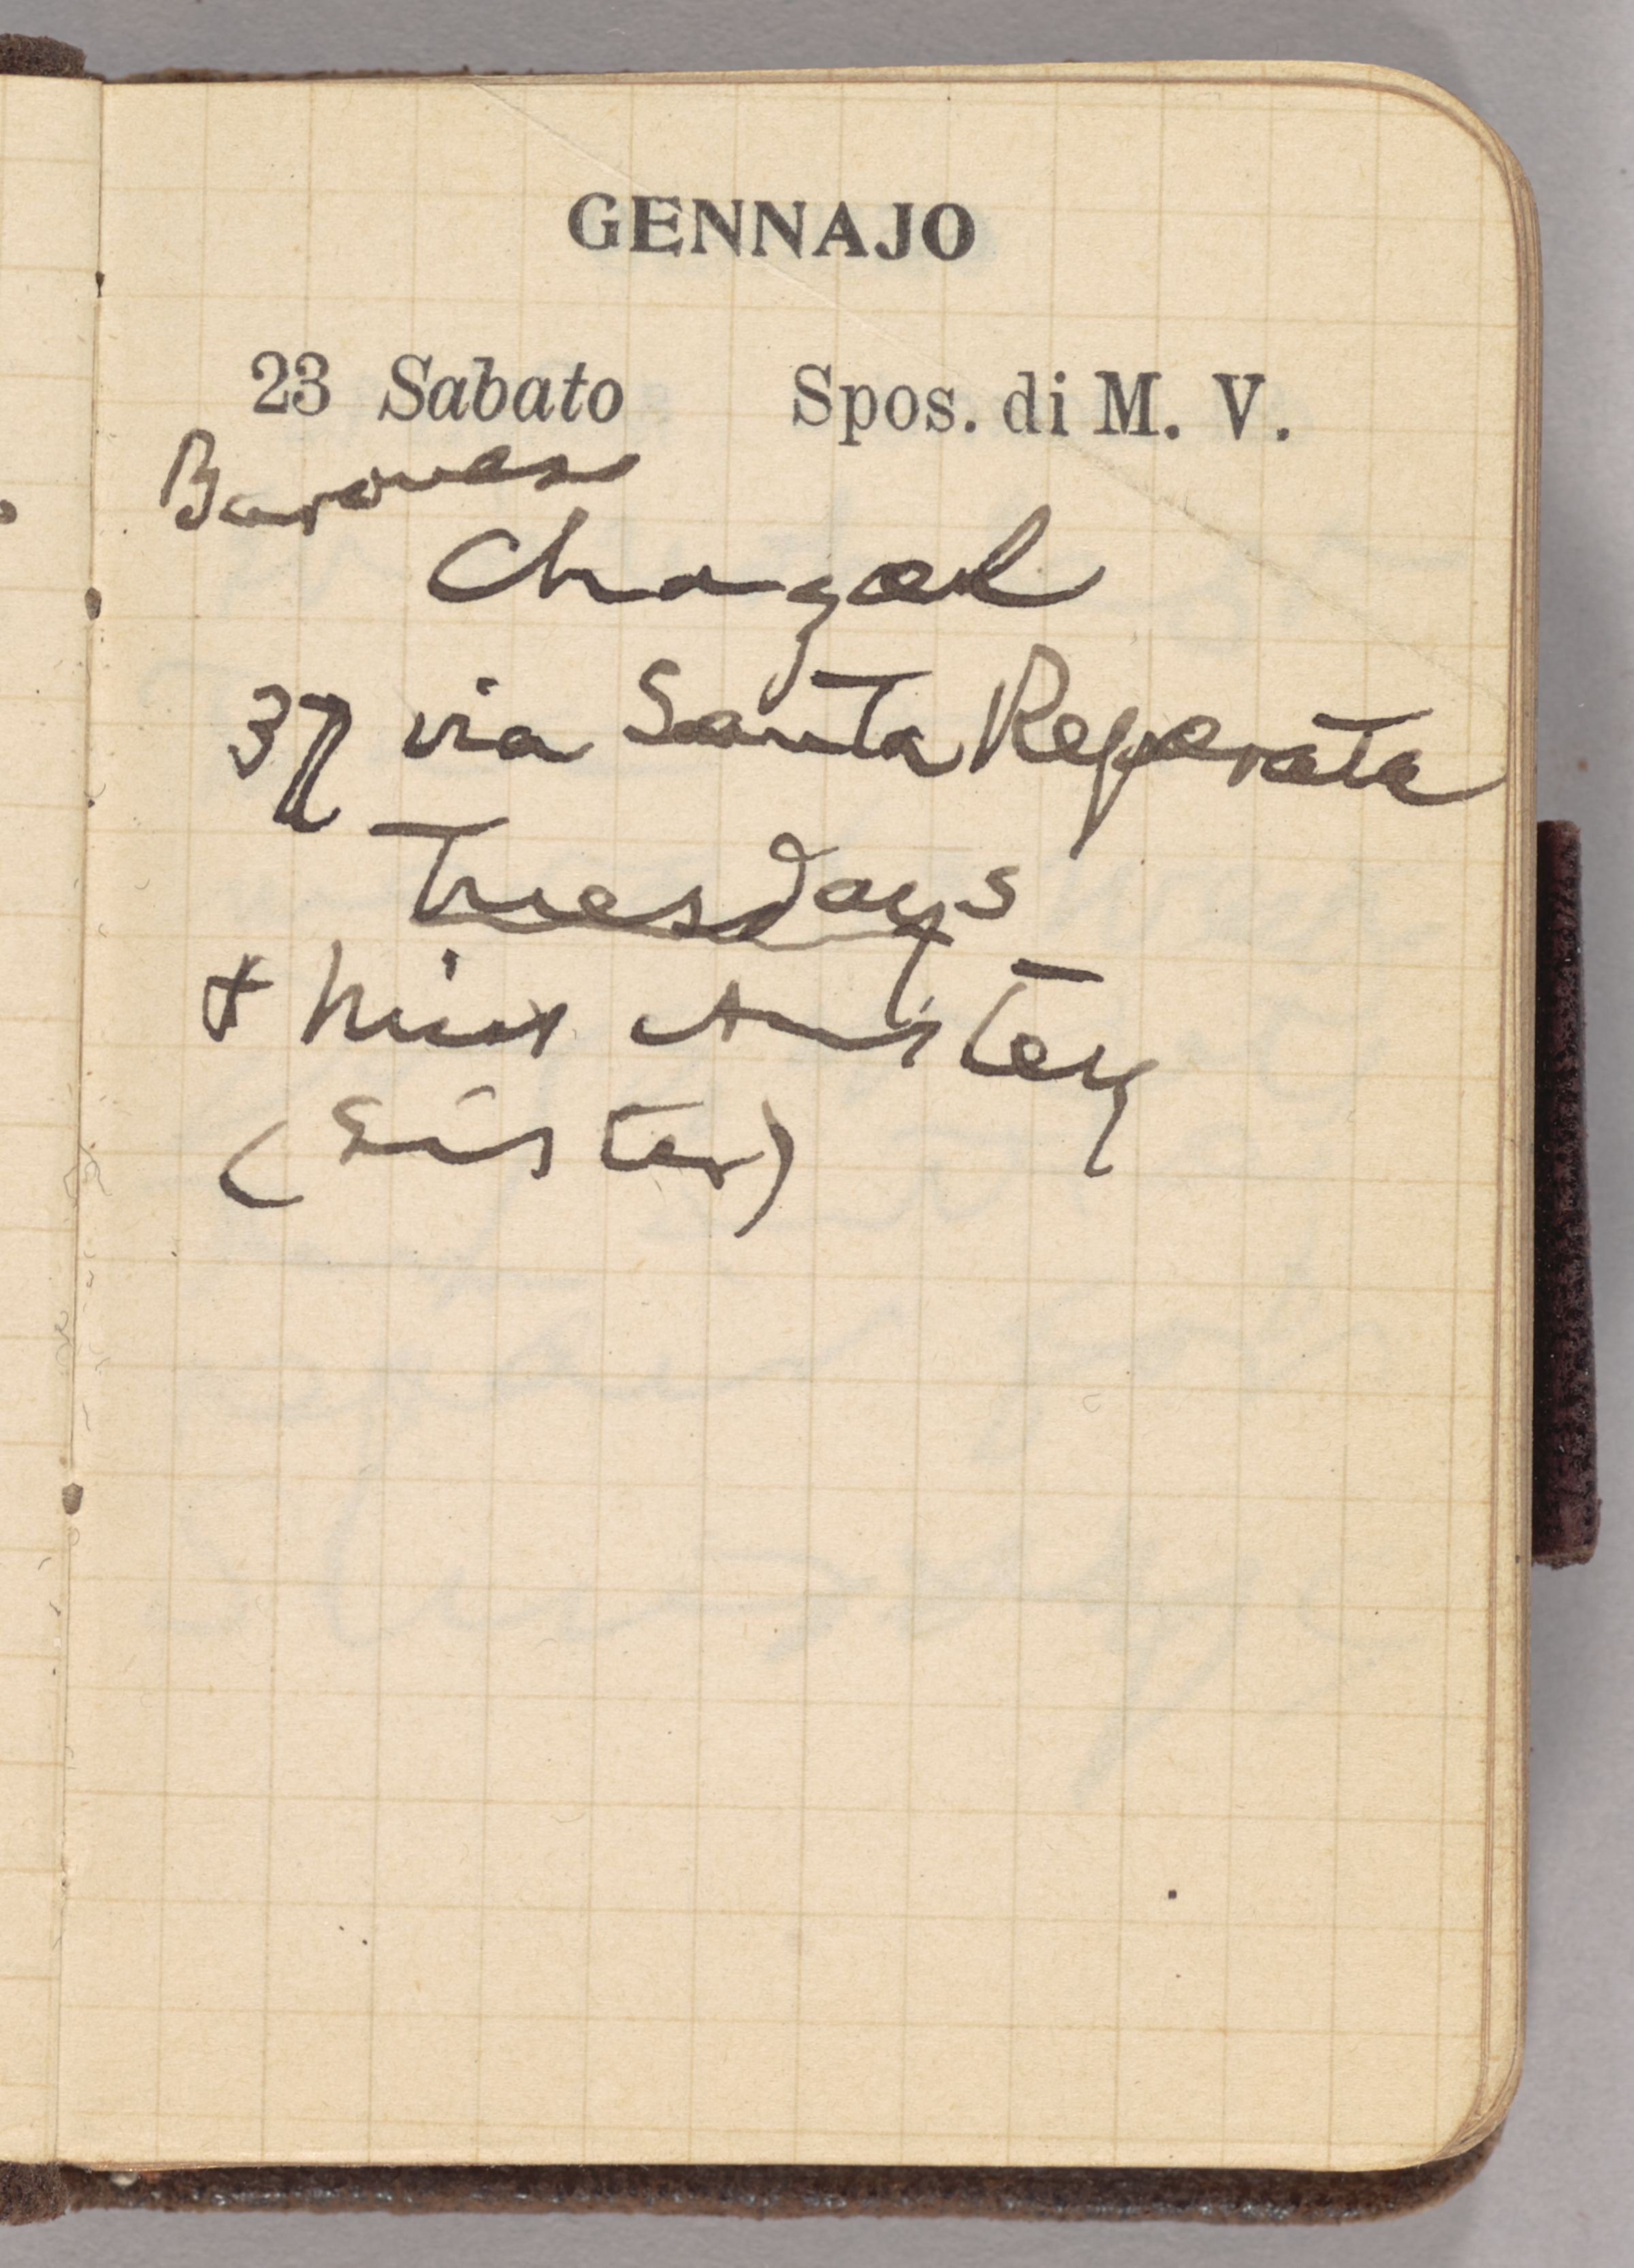 GENNAJO
23 Sabato Spos. di M. V.
Baroness
Chazal
37 via Santa Reparata
Tuesdays
+ Miss Anstey
(Sister)